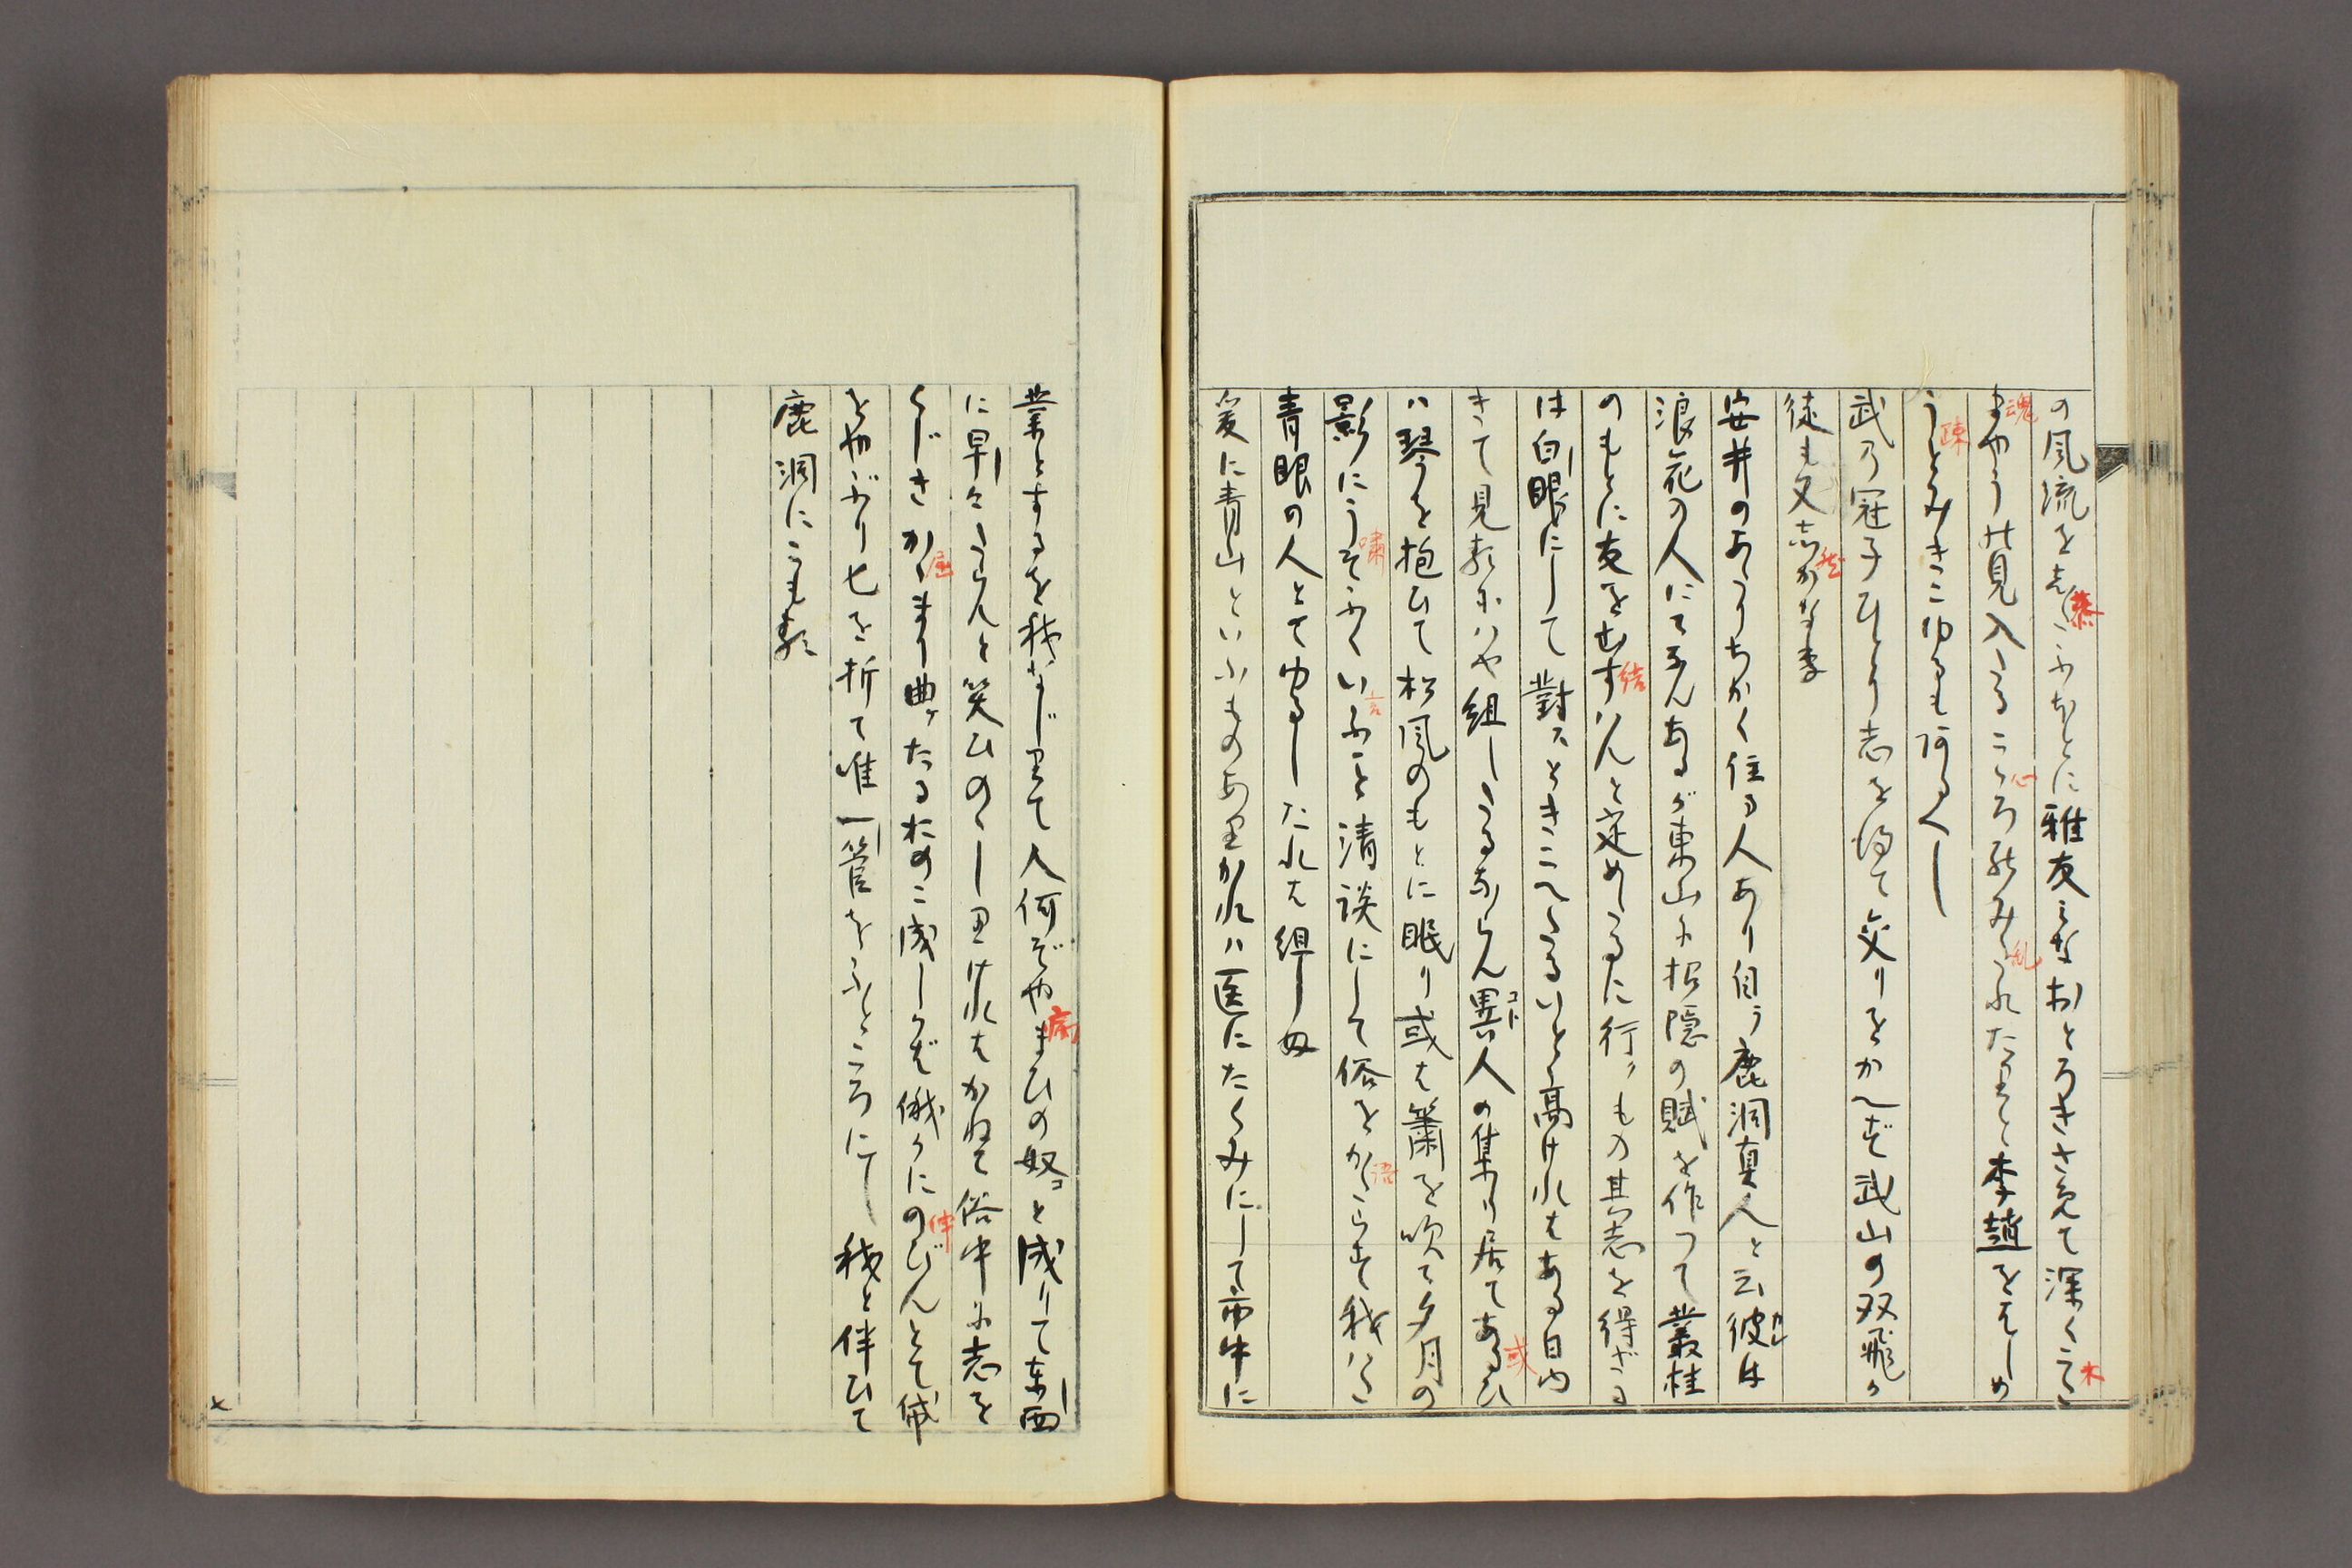 の風流をしたふあとに雅友みなおとろきさめて深くこゝ
まやう見入たるこゝろ能みたれたりと李趙をはしめ
うとみきこゆるも何るへし
武乃冠子ひとり志を得て交りをかへず武山の双飛か
徒も又志かなり
安井のあたりちかく住る人あり自ラ鹿洞真人と云彼は
浪花の人にてなんあるが東山に招隠の賦を作つて叢桂
のもとに友をむすはんと定めしるに行クもの其志を得ざる
は白眼にして對スときこへたるいと高けれはある日内
きて見れはや組したるならん異人の集り居てあるひ
ハ琴を抱ひて松風のもとに眠り或は簫を吹て夕月の
影にうそふくいふこと清談にして俗をかたらず我にも
青眼の人とてゆるしたれは組しぬ
爰に青山といふものありかれハ医にたくみにして市中に
業とするを我なじりて人何ぞやまひの奴と成りて東西
に早々たらんと笑ひのゝしりけれはかねて俗中に志を
くじきかゝまり曲ケたるおのこ成しかば俄かにのびんとて傲
をやぶり匕を折て唯一管をふところにし我と伴ひて
鹿洞にこもる
魂
慕
心
乱
木
疎
然
結
或
嘯
言
語
病
屈
伸
コト
カレ
七